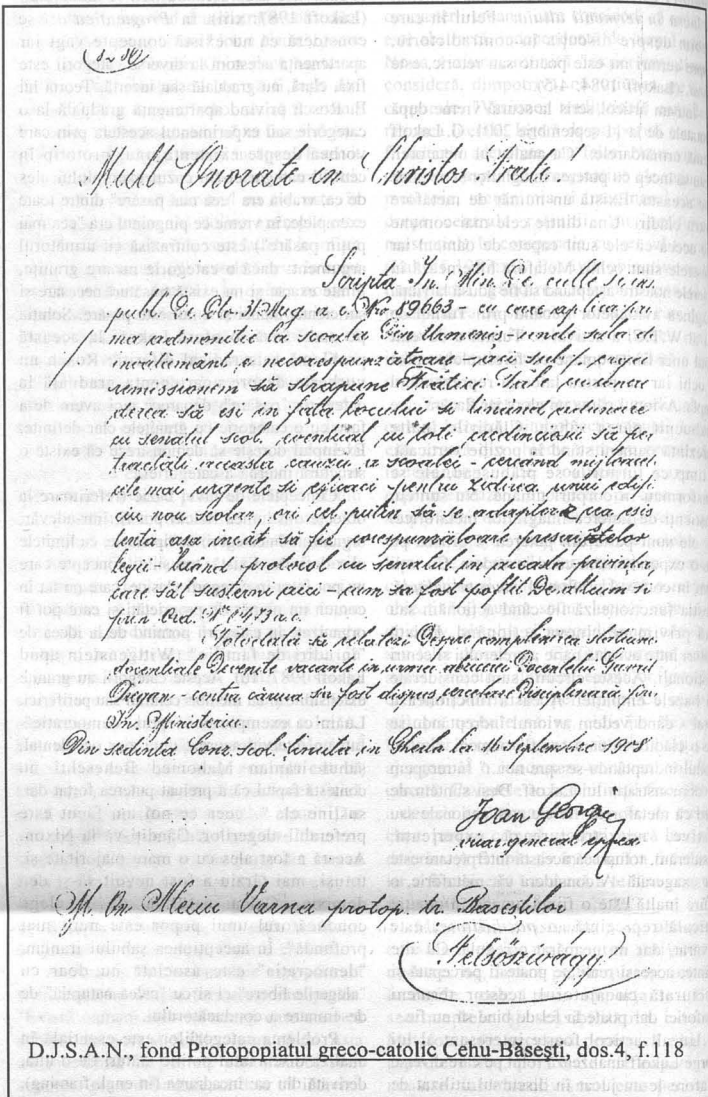 Mult Onorate in Christos Frate!
Scripta In. Min. de culte si ins.
publ. de dto 31 Aug. a. c. Nro 89663 – cu care aplica pri-
ma admonitie la scoala din Urmenis – unde sala de
invatamânt, e necorespunzătoare – aici sub / . pergế
remissionem să strapune Frătiei Tale cu înda-
să esi in fata locului si tinând
cu senatul scol. eventual cu toti credinciosii să per-
tractati aceasta cauză a scoalei – cercand mijloace-
cele mai urgente si eficaci – pentru zidirea unui edifi-
ciu nou scolar, ori cel putin să se adapteze cea esis-
tentă asa incât să fie corespunzătoare prescriptelor
legii luând protocol cu senatul in aceasta privinta,
care să-l susterni aici – cum ai fost poftit de altcum si
prin Ord. Nr 6473 a. c.
Totodată si relatia despre implinirea statiunii
docentiale devenite vacante in urma abzicerii docentelui Gavril
Dragan – contra căruia au fost dispus cercetare disciplinară prin
In. Ministeriu.
Din sedinta Cons. scol. tinuta in Gherla la 16 Septembre 1908
Ioan Georgiu
vicar general eppesc
M. On. Alecsiu Varna protop. tr. Bacestilor
(Felsöszivagy)
D.J.S.A.N., fond Protopopiatul greco-catolic Cehu-Băsești, dos.4, f.118